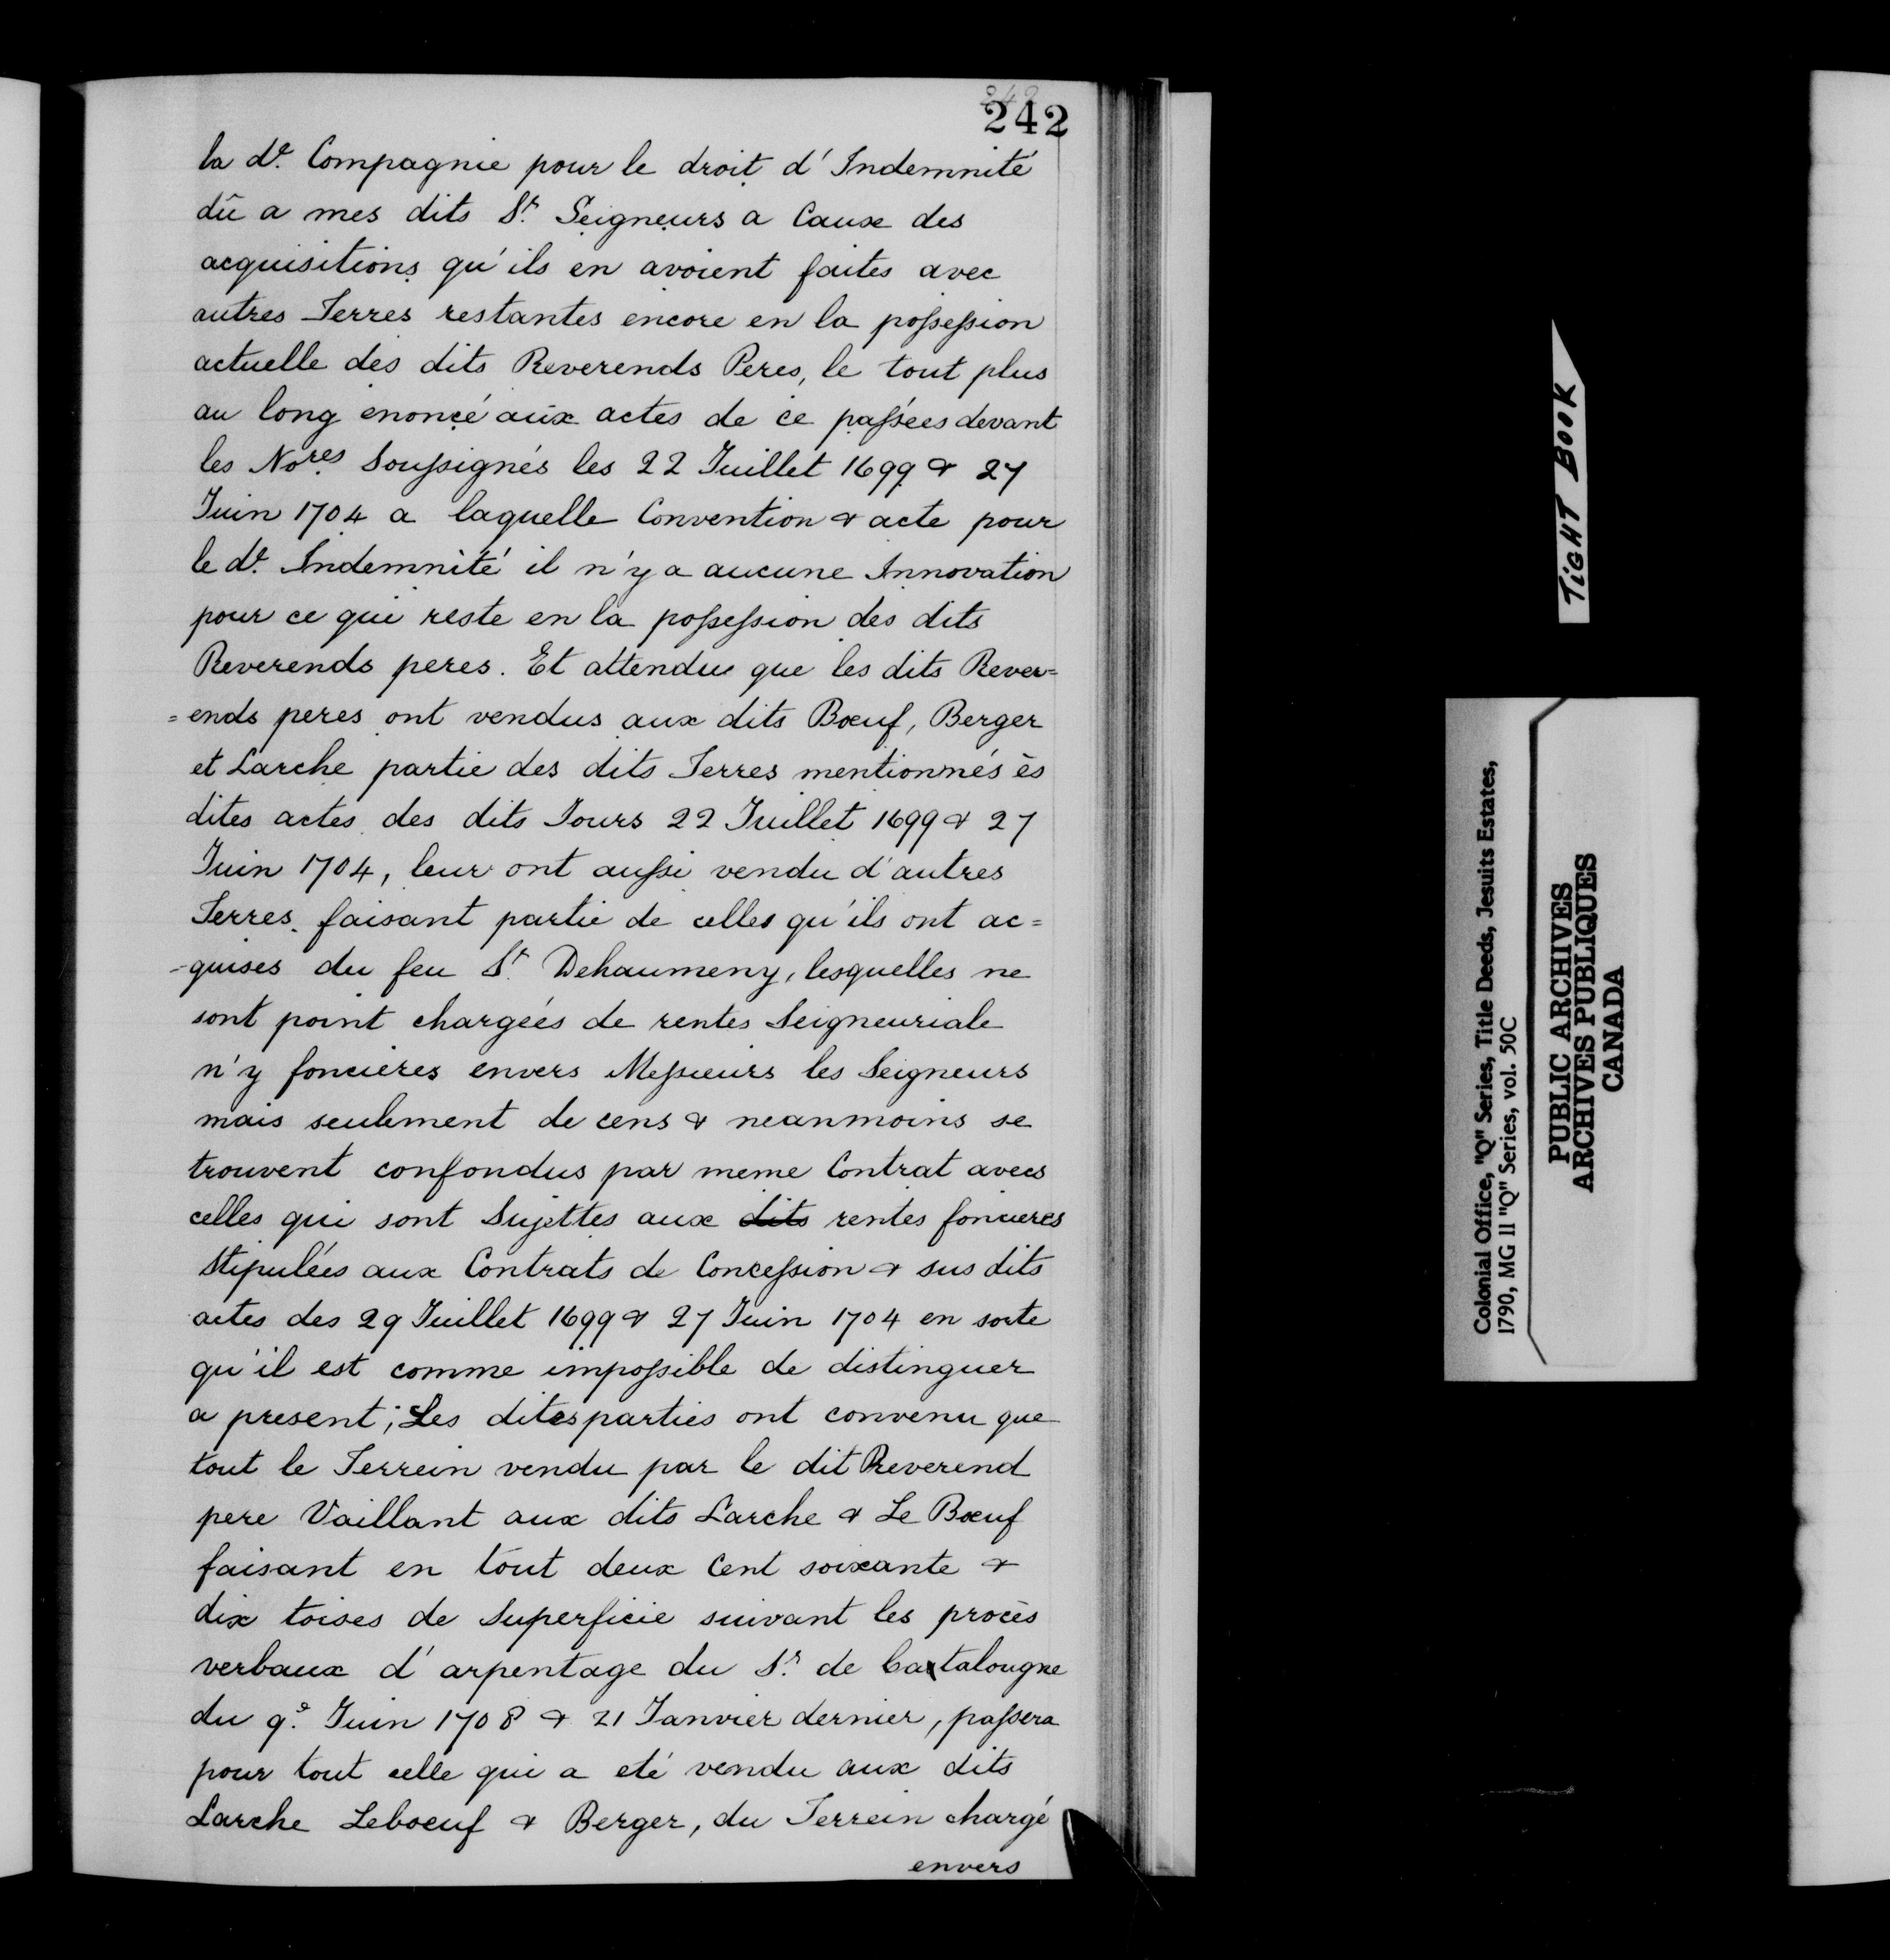 242
242
la de. Compagnie pour le droit d'Indemnité
dû a mes dits Srs. Seigneurs a Cause des
acquisitions qu'ils en avoient faites avec
autres Terres restantes encore en la possession
actuelle des dits Reverends Peres, le tout plus
au long enoncé aux actes de ce passées devant
les Nores. Soussignés les 22 Juillet 1699 & 27
Juin 1704 a laquelle Convention & acte pour
le de. Indemnité il n'y a aucune Innovation
pour ce qui reste en la possession des dits
Reverends peres. Et attendu que les dits Rever=
=ends peres ont vendus aux dits Bœuf, Berger
et Larche partie des dits Terres mentionnés ès
dites actes des dits Jours 22 Juillet 1699 & 27
Juin 1704, leur ont aussi vendu d'autres
Terres faisant partie de celles qu'ils ont ac=
-quises du feu Sr. Dehaumeny, lesquelles ne
sont point chargées de rentes Seigneuriale
n'y foncieres envers Messieurs les Seigneurs
mais seulement de cens & neanmoins se
trouvent confondus par meme Contrat avecs
celles qui sont Sujettes aux dits rentes foncieres
Stipulées aux Contrats de Concession & sus dits
actes des 29 Juillet 1699 & 27 Juin 1704 en sorte
qu'il est comme impossible de distinguer
a present; Les dites parties ont convenu que
tout le Terrein vendu par le dit Reverend
pere Vaillant aux dits Larche & Le Bœuf
faisant en tout deux Cent soixante &
dix toises de Superficie suivant les procès
verbaux d'arpentage du Sr. de Catalougne
du 9e. Juin 1708 & 21 Janvier dernier, passera
pour tout celle qui a eté vendu aux dits
Larche Leboeuf & Berger, du Terrein chargé
envers
TIGHT BOOK
Colonial Office, "Q" Series, Title Deeds, Jesuits Estates,
1790, MG 11 "Q" Series, vol. 50C
PUBLIC ARCHIVES
ARCHIVES PUBLIQUES
CANADA